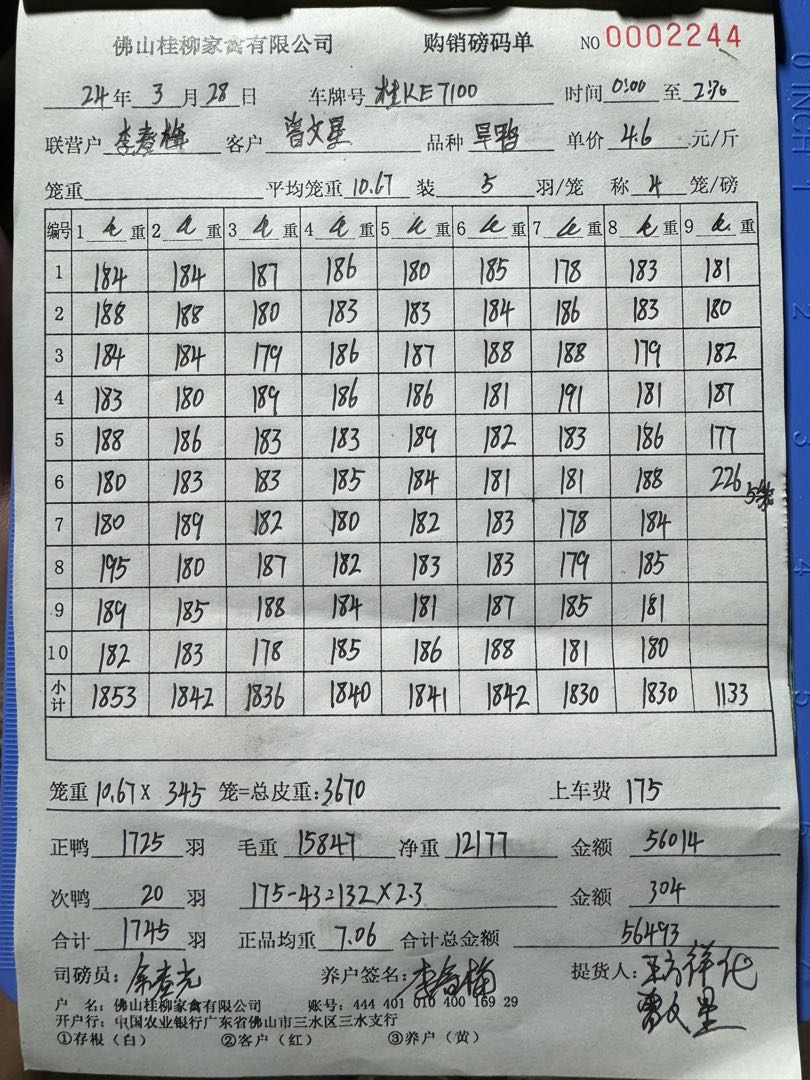 佛山桂柳家禽有限公司 购销磅码单 NO 0002244
24年 3 月 28 日 车牌号 桂KE7100 时间 0:00 至 2:30
联营户 李春梅 客户 曾文星 品种 旱鸭 单价 4.6 元/斤
笼重 平均笼重 10.67 装 5 羽/笼 称 4 笼/磅
编号 1 毛 重 2 毛 重 3 毛 重 4 毛 重 5 毛 重 6 毛 重 7 毛 重 8 毛 重 9 毛 重
1 184 184 187 186 180 185 178 183 181
2 188 188 180 183 183 184 186 183 180
3 184 184 179 186 187 188 188 179 182
4 183 180 189 186 186 181 191 181 187
5 188 186 183 183 189 182 183 186 177
6 180 183 183 185 184 181 181 188 226 5笼
7 180 189 182 180 182 183 178 184
8 195 180 187 182 183 183 179 185
9 189 185 188 184 181 187 185 181
10 182 183 178 185 186 188 181 180
小计 1853 1842 1836 1840 1841 1842 1830 1830 1133
笼重 10.67 X 345 笼=总皮重:3670 上车费 175
正鸭 1725 羽 毛重 15847 净重 12177 金额 56014
次鸭 20 羽 175-43=132X2.3 金额 304
合计 1745 羽 正品均重 7.06 合计总金额 56493
司磅员: 养户签名: 李春梅 提货人: 曾文星
户 名: 佛山桂柳家禽有限公司 账号: 444 401 010 400 169 29
开户行: 中国农业银行广东省佛山市三水区三水支行
①存根(白) ②客户(红) ③养户(黄)